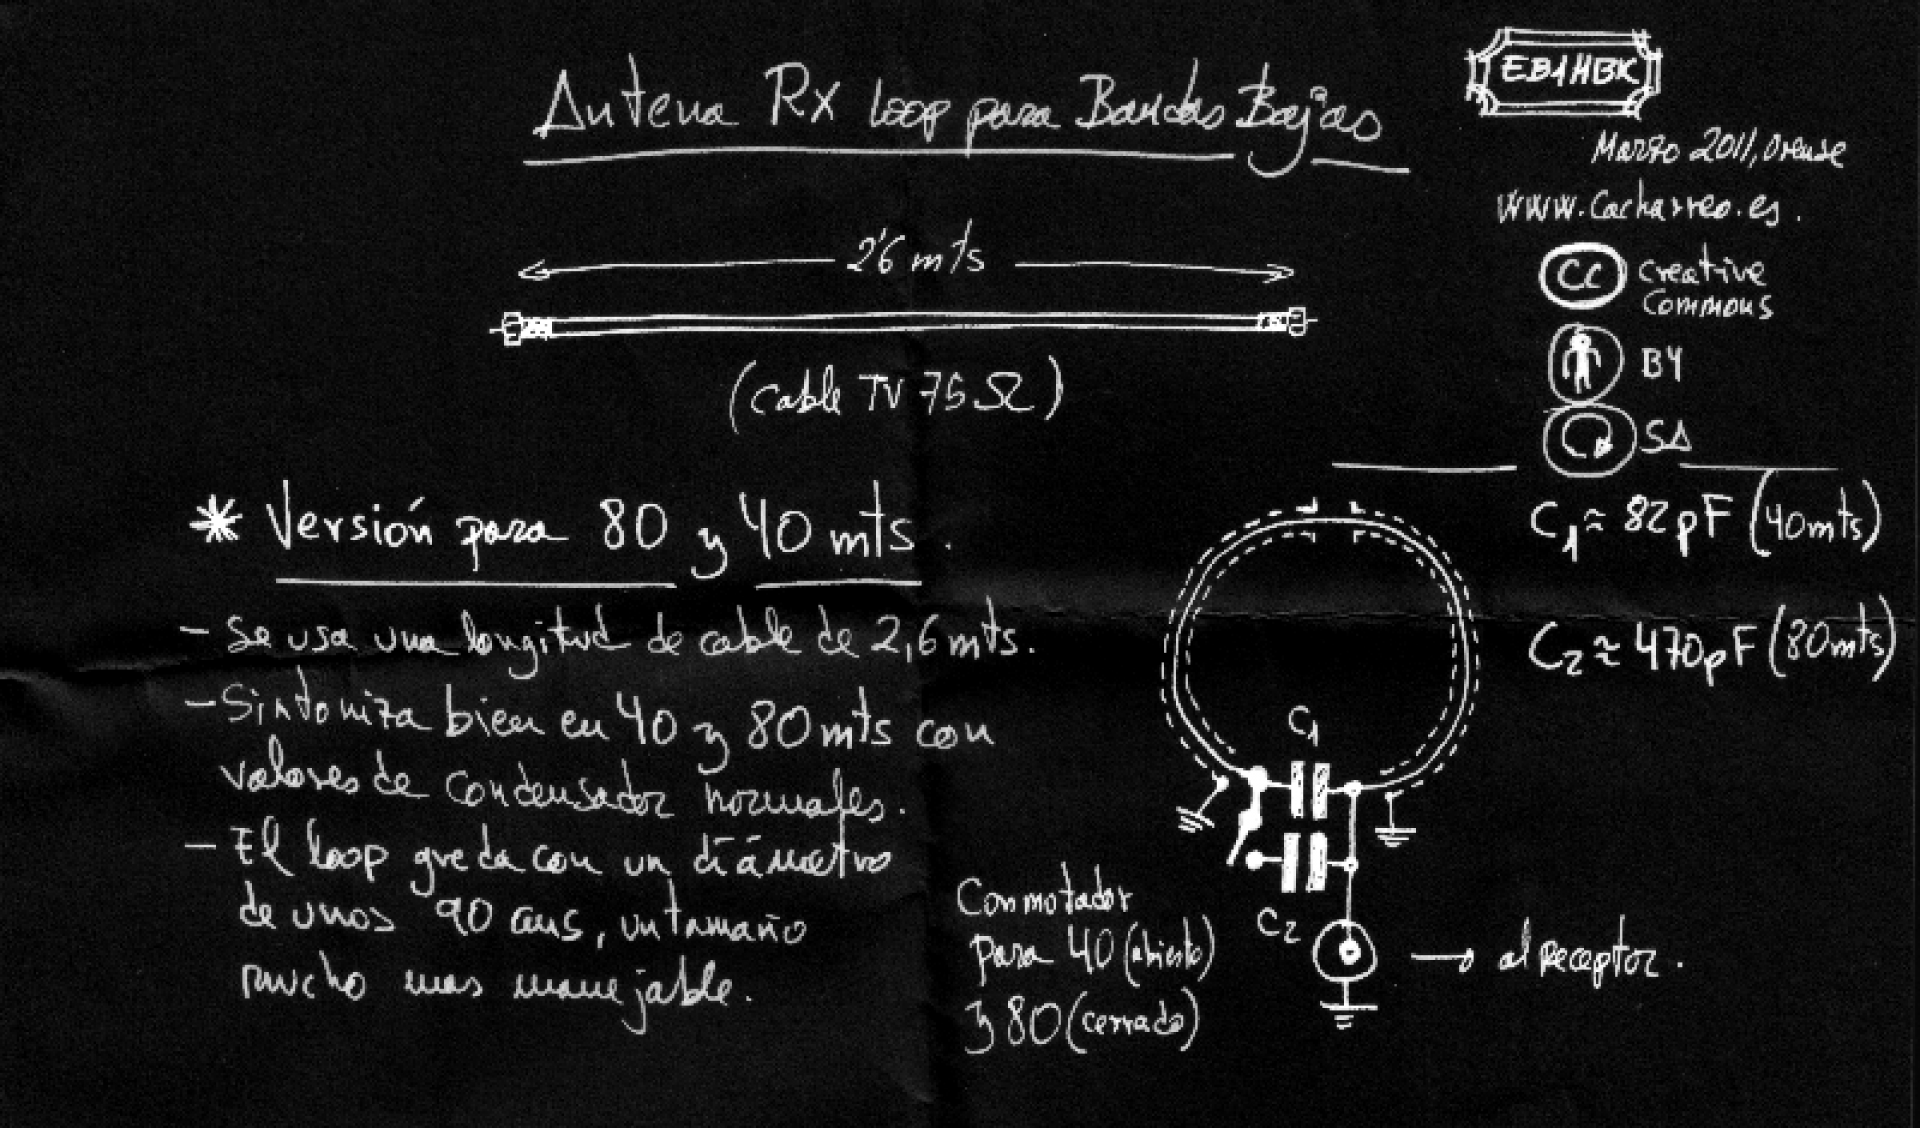 EB1HBK
Antena Rx loop para Bandas Bajas
Marzo 2011, Orense
www.cacharreo.es.
2'6 mts
CC Creative
Commons
BY
(cable TV 75 Ω)
SA
* Versión para 80 y 40 mts.
- Se usa una longitud de cable de 2,6 mts.
- Sintoniza bien en 40 y 80 mts con
valores de condensador normales.
- El loop queda con un diámetro
de unos 90 cms, un tamaño
mucho mas manejable.
C1 ≈ 82 pF (40 mts)
C2 ≈ 470 pF (80 mts)
C1
C2
Conmutador
para 40 (abierto)
y 80 (cerrado)
→ al receptor.